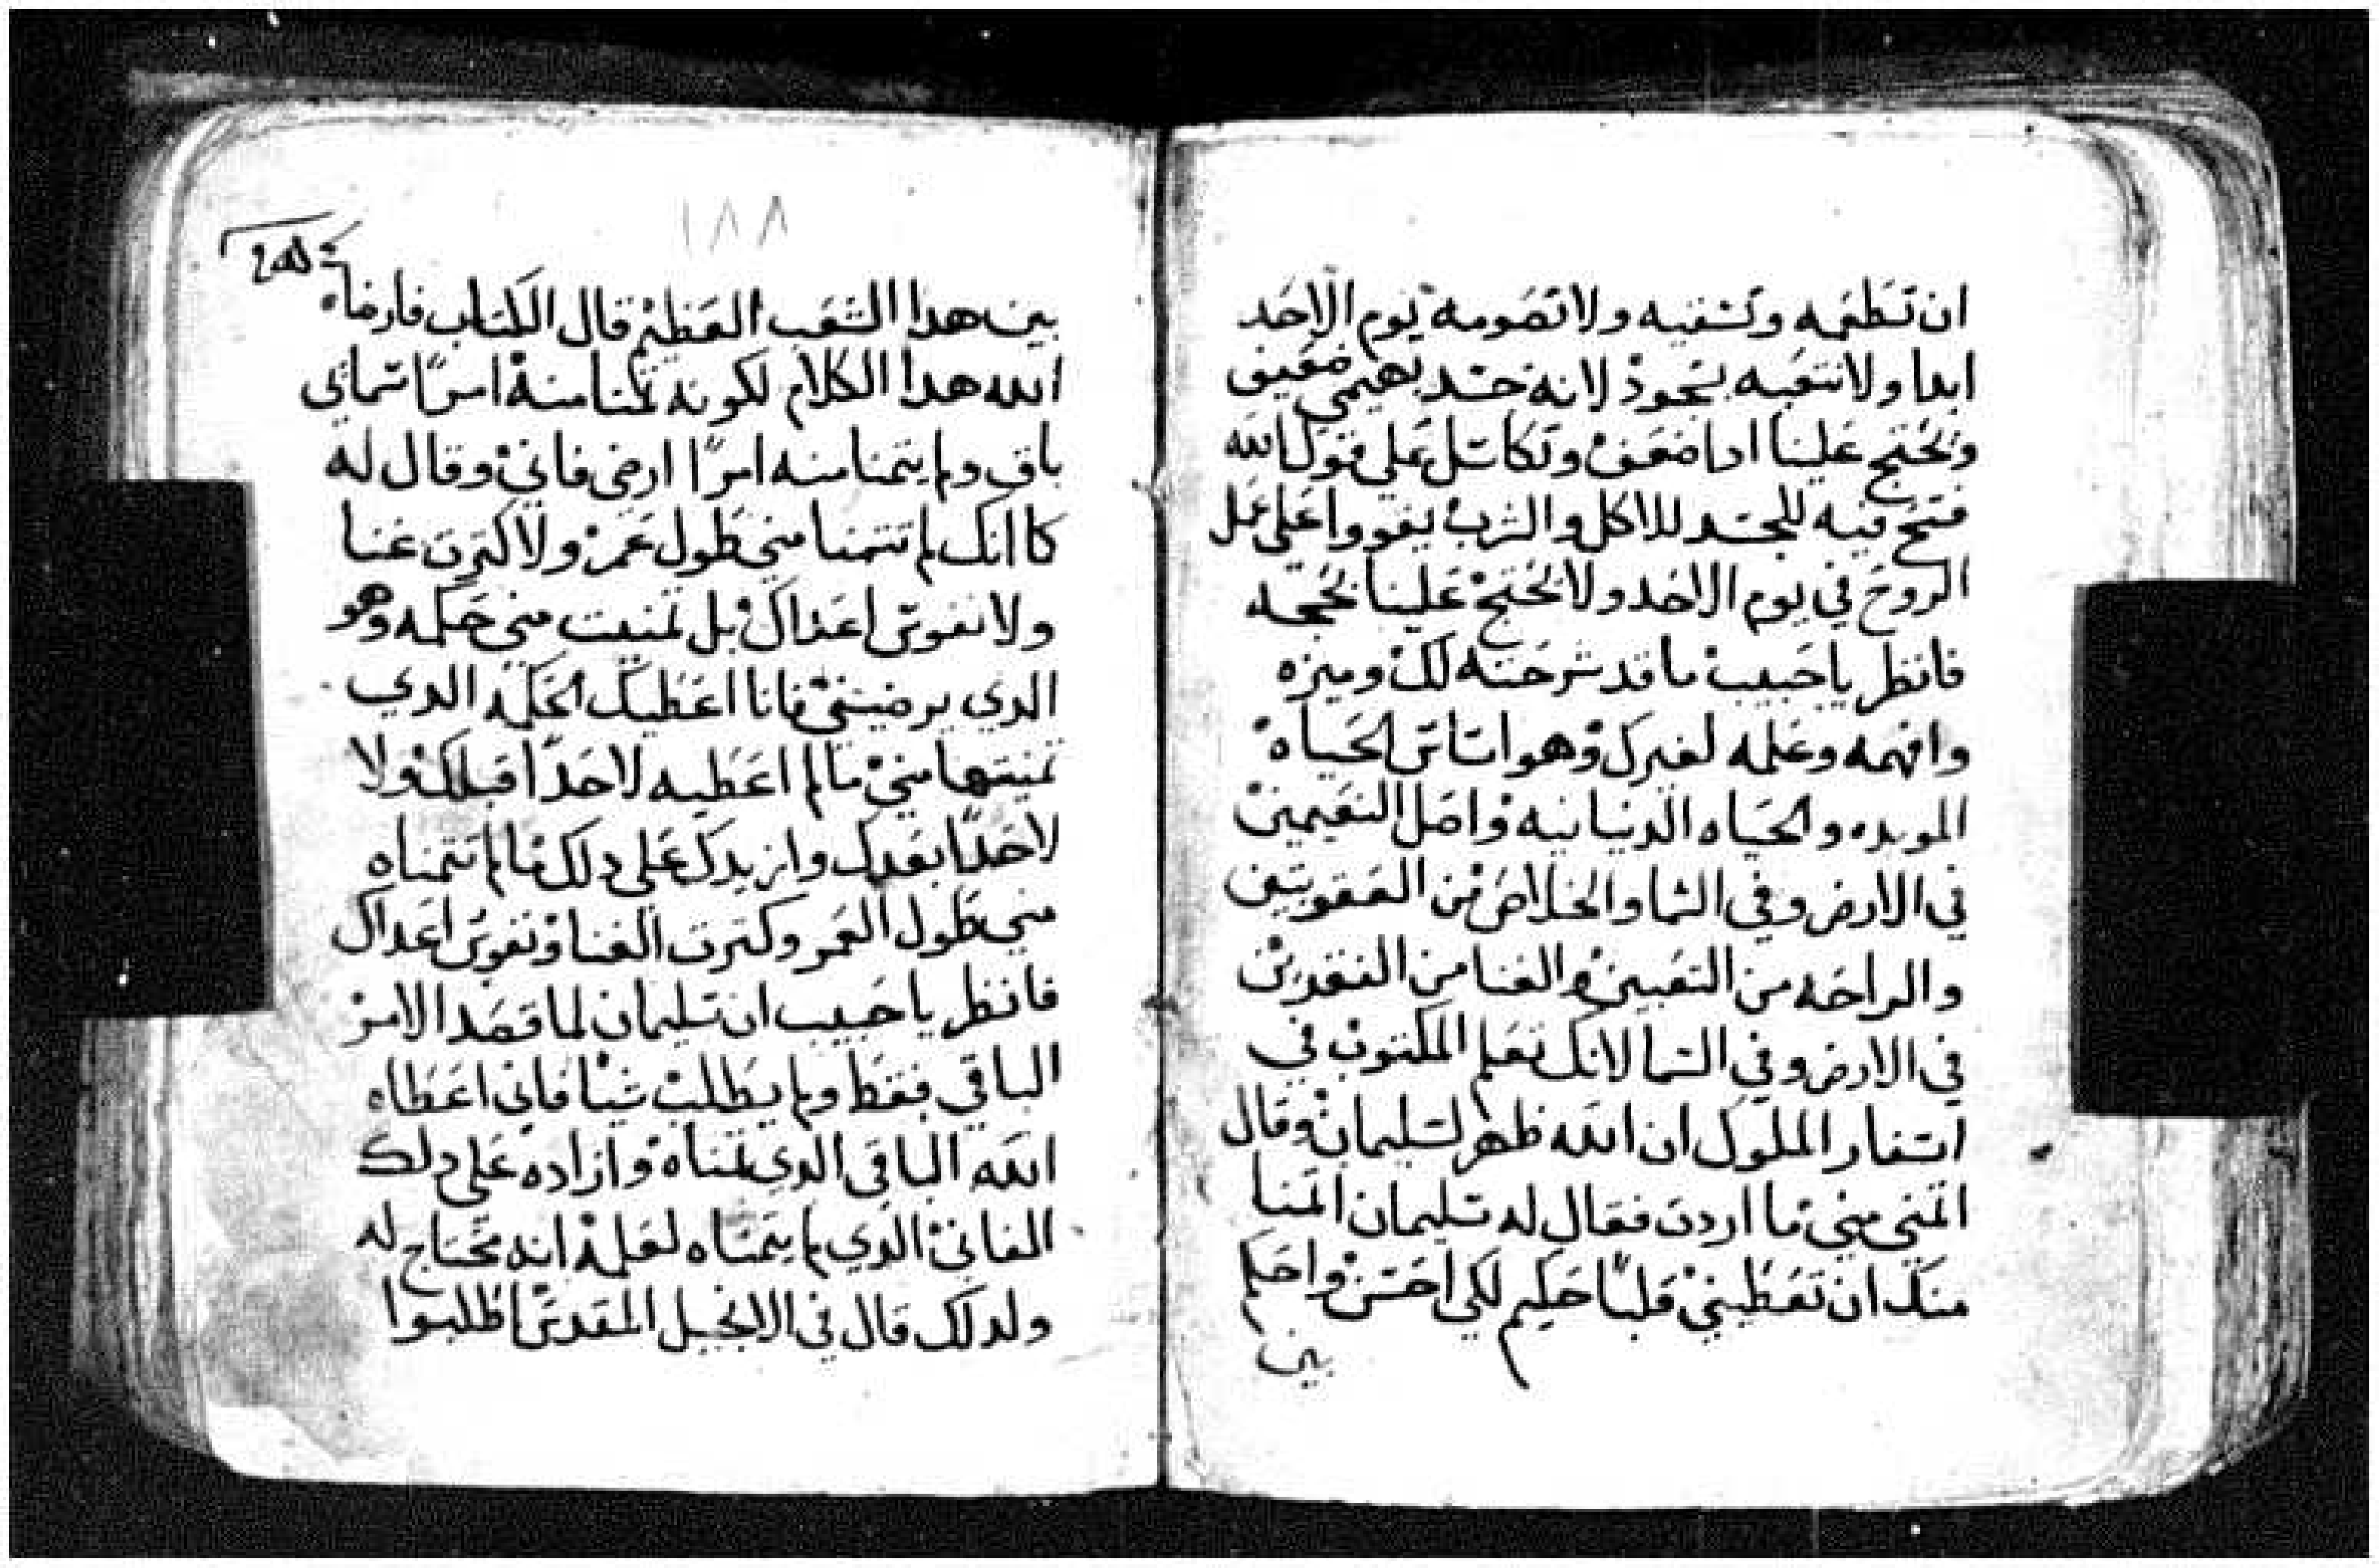 ان تطعمه وتسقيه ولا تصومه يوم الاحد
ابدا ولا تتعبه بسجود لانه جسد بهيمي ضعيف
ويحتج علينا اذا ضعف وتكاسل علي قول الله
فتح فيه للجسد للاكل والشرب يقووا علي عمل
الروح في يوم الاحد ولا يحتج علينا بحجه
فانظر يا حبيب ما قد شرحته لك وميزه
وافهمه وعلمه لغيرك وهو اساس الحياه
الموبده والحياه الدنيانيه واصل النعيمين
في الارض وفي السما والخلاص من العقوبتين
والراحه من التعبين والغنا من الفقرين
في الارض وفي السما لانك تعلم المكتوب في
اسفار الملوك ان الله ظهر لسليمان وقال
اتمني مني ما اردت فقال له سليمان اتمنا
منك ان تعطيني قلبًا حكيم لكي احسن واحكم
بين
١٨٨
بين هدا الشعب العظيم قال الكتاب فارضا
الله هدا الكلام لكونه تمنا منه امرًا سماي
باق ولم يتمنا منه امرًا ارضي فاني وقال له
كما انك لم تتمنا مني طول عمر ولا كترت غنا
ولا نفوس اعداك بل تمنيت مني حكمه وهو
الدي يرضيني فانا اعطيك الحكمه الدي
تمنيتها مني ما لم اعطيه لاحدًا قبلك ولا
لاحدًا بعدك وازيدك علي دلك ما لم تتمناه
مني طول العمر وكترت الغنا ونفوس اعداك
فانظر يا حبيب ان سليمان لما قصد الامر
الباقي فقط ولم يطلب شيا فاني اعطاه
الله الباقي الدي تمناه وازاده علي دلك
الفاني الدي لم يتمناه لعلمه انه محتاج له
ولدلك قال في الانجيل المقدس اطلبوا